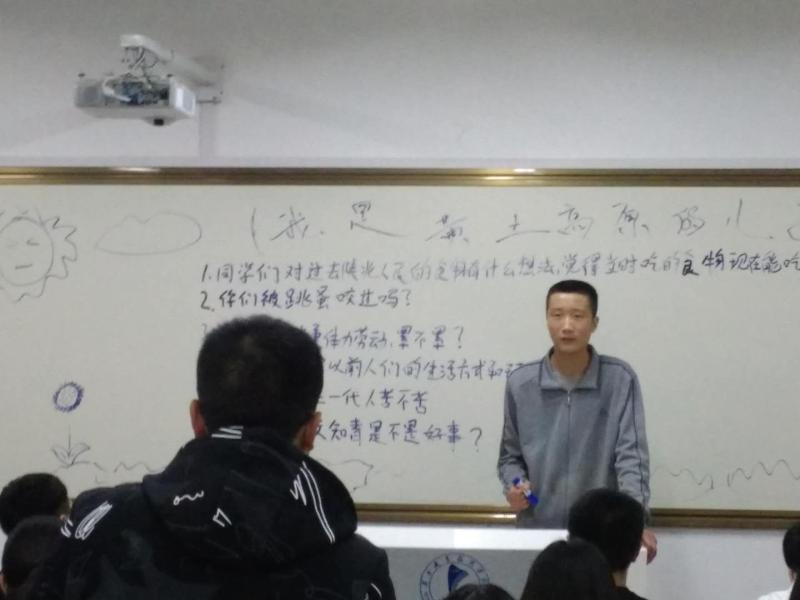 我是黄土高原的儿
1.同学们对过去陕北人民的食物有什么想法,觉得当时吃的食物现在能吃
2.你们被跳蚤咬过吗?
体力劳动,累不累?
以前人们的生活方式和
一代人苦不苦
知青是不是好事?